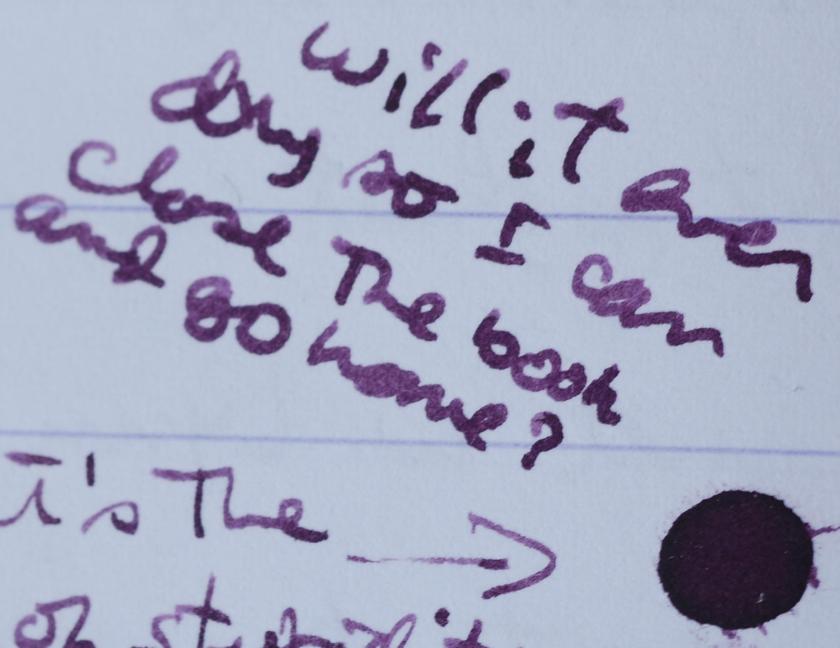 will it ever
dry so I can
close the book
and go home?
it's the →
of